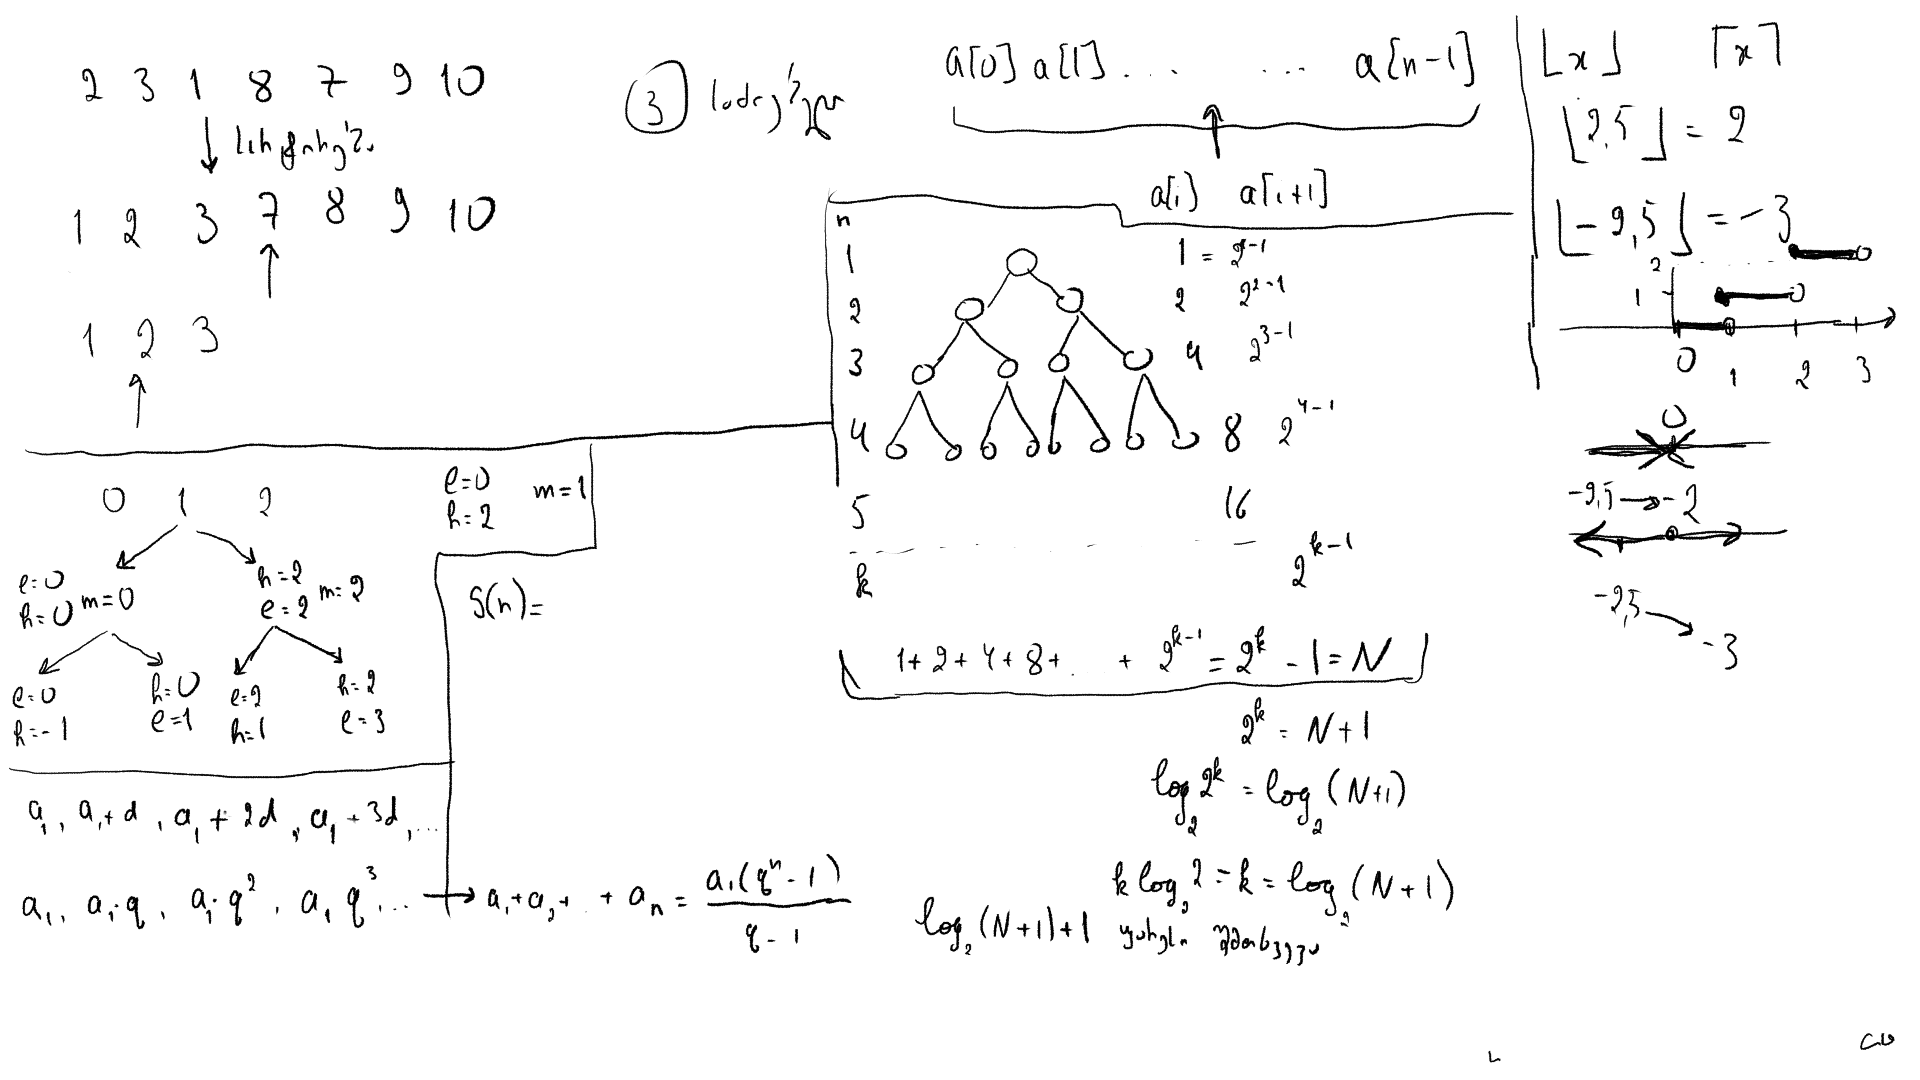 2 3 1 8 7 9 10
1 2 3 7 8 9 10
1 2 3
3
a[0] a[1] . . . . . . a[n-1]
a[i] a[i+1]
⌊x⌋ ⌈x⌉
⌊2,5⌋ = 2
⌊-2,5⌋ = -3
2
1
0 1 2 3
0
-2,5 → -2
-2,5 → -3
n
1 1 = 2^{1-1}
2 2 2^{2-1}
3 4 2^{3-1}
4 8 2^{4-1}
5 16
k 2^{k-1}
1 + 2 + 4 + 8 + ... + 2^{k-1} = 2^k - 1 = N
2^k = N + 1
log₂ 2^k = log₂ (N+1)
k log₂ 2 = k = log₂ (N+1)
log₂ (N+1) + 1
l=0
h=2 m=1
0 1 2
l=0
h=0 m=0
h=2
l=2 m=2
l=0
h=-1
h=0
l=1
l=2
h=1
h=2
l=3
S(n)=
a₁, a₁+d, a₁+2d, a₁+3d, ...
a₁, a₁·q, a₁·q², a₁q³, ... → a₁+a₂+ .. + aₙ = a₁(qⁿ - 1) / q - 1